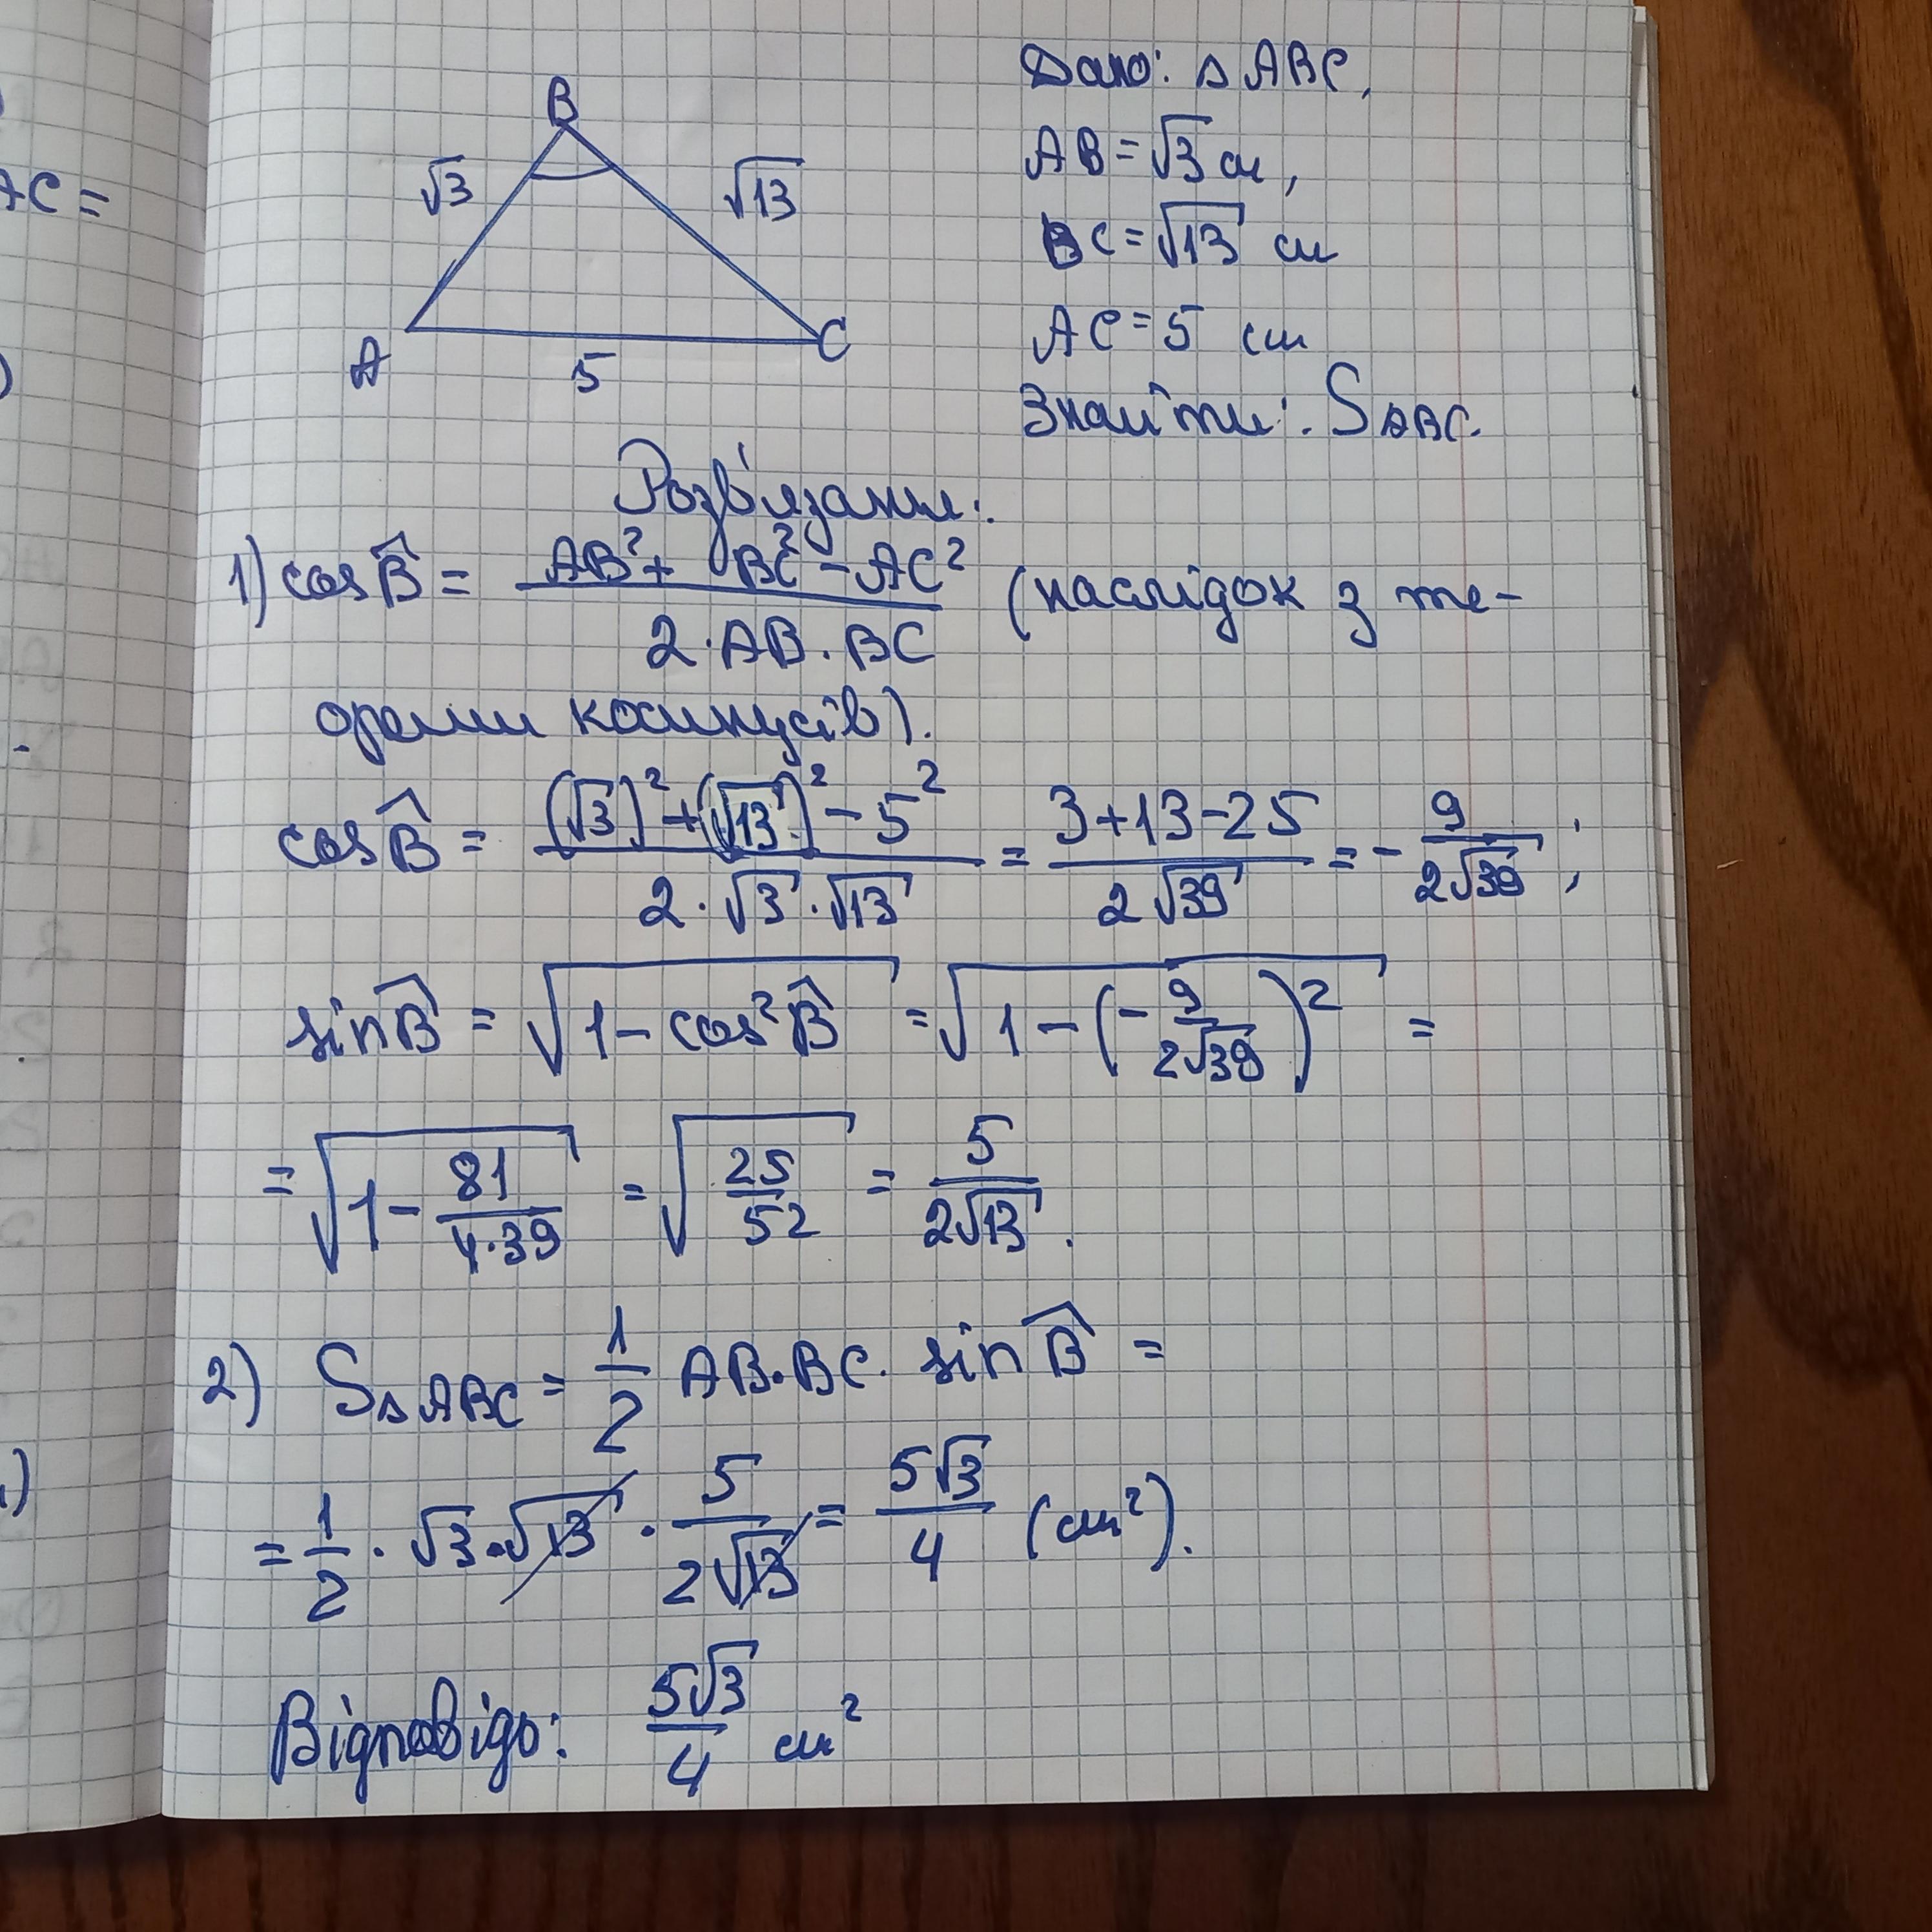 AC =
B
√3
√13
A
5
C
Дано: △ ABC,
AB = √3 см,
BC = √13 см
AC = 5 см
Знайти: S△BC.
Розв'язання:
1) cos B̂ = (AB² + BC² - AC²) / (2·AB·BC) (наслідок з те-
ореми косинусів).
cos B̂ = ((√3)² + (√13)² - 5²) / (2·√3·√13) = (3+13-25) / (2√39) = - 9 / (2√39) ;
sin B̂ = √(1 - cos² B̂) = √(1 - (- 9 / (2√39))²) =
= √(1 - 81 / (4·39)) = √(25 / 52) = 5 / (2√13) .
2) S△ABC = 1/2 AB·BC· sin B̂ =
= 1/2 · √3 · √13 · 5 / (2√13) = 5√3 / 4 (см²).
Відповідь: 5√3 / 4 см²